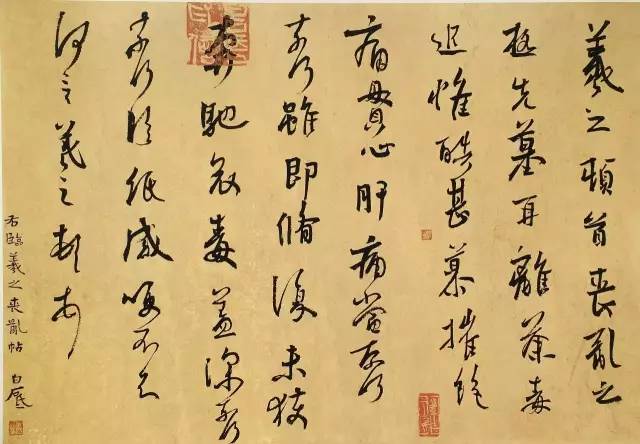 羲之頓首喪亂之
極先墓再離荼毒
追惟酷甚慕摧絕
痛貫心肝痛當奈何
奈何雖即脩復未獲
奔馳哀毒益深奈何
奈何臨紙感哽不知
何言羲之頓首
右臨羲之喪亂帖 白砥